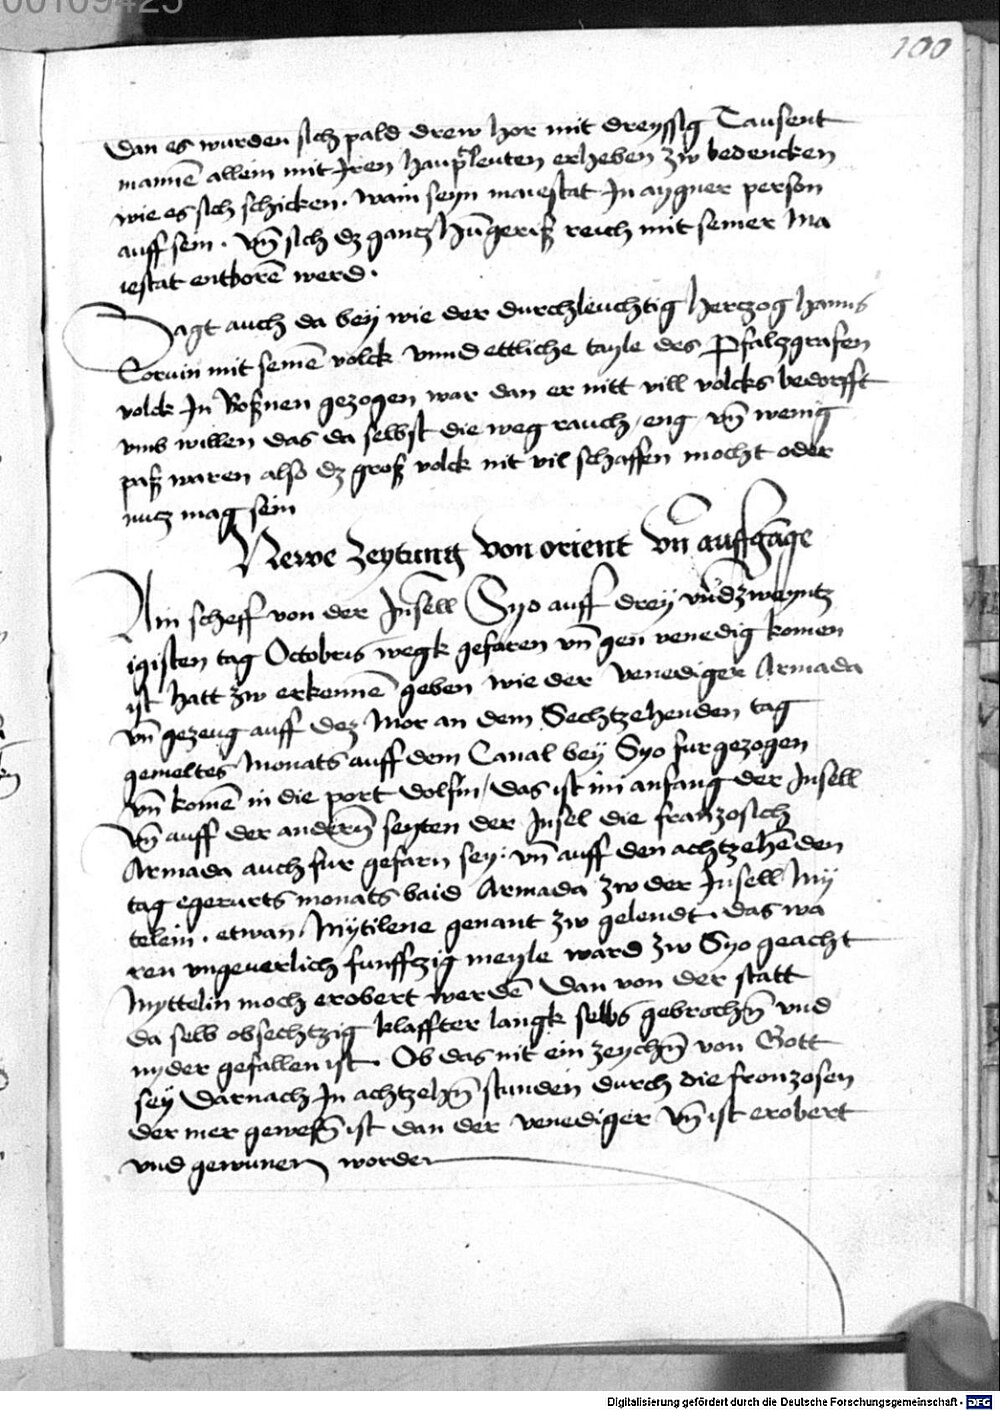 00109425
100
Dan es wurden sich pald drew hor mit dreyssig Tausent
mannē allein mit Iren hauptleuten erheben zw bedencken
wie es sich schicken. wann seyn maiestat In aygner person
auff sein. vn̄ sich dz gantz hūgerisch reich mit seiner Ma
iestat entborē werd.
Sagt auch da bey wie der durchleuchtig hertzog hanns
Coruin mit seinē volck vnnd ettliche tayle des Pfaltzgrafen
volck In Boßnen gezogen war dan er nitt vill volcks bedorfft
vmb willen das da selbst die weg rauch/ eng vn̄ wenig
paß waren also dz groß volck nit vil schaffen mocht oder
nutz mag sein
Newe zeytung von orient vn̄ auffgāge
Ain scheff von der Insell Syo auff drey vn̄dzweyntz
igisten tag Octobris wegk gefaren vn̄ gen venedig komen
ist hatt zw erkennē geben wie der venediger Armada
vn̄ gezeug auff dez Mor an dem Sechtzehenden tag
gemeltes Monats auff dem Canal bey Syo fur gezogen
vn̄ komē in die port dolfin/ das ist im anfang der Insell
vn̄ auff der andern̄ seyten der Insel die franzosich
Armada auch fur gefarn sey. vn̄ auff den achtzehēden
tag egerurts monats baid Armada zw der Insell My
telein. etwan Mytilene genant zw gelendt. das wa
ren vngeuerlich funfftzig meyle ward zw Syo geacht
Myttelin moch erobert werdē Dan von der statt
da selb ob sechtzig klaffter langk selbs gebrochn̄ vnd
nyder gefallen ist. Ob das nit ein zeychn̄ von Gott
sey Darnach In achtzehn̄ stunden durch die fronzosen
der mer gewesn̄ ist dan der venediger vn̄ ist erobert
vnd gewunen worden
Digitalisierung gefördert durch die Deutsche Forschungsgemeinschaft - DFG